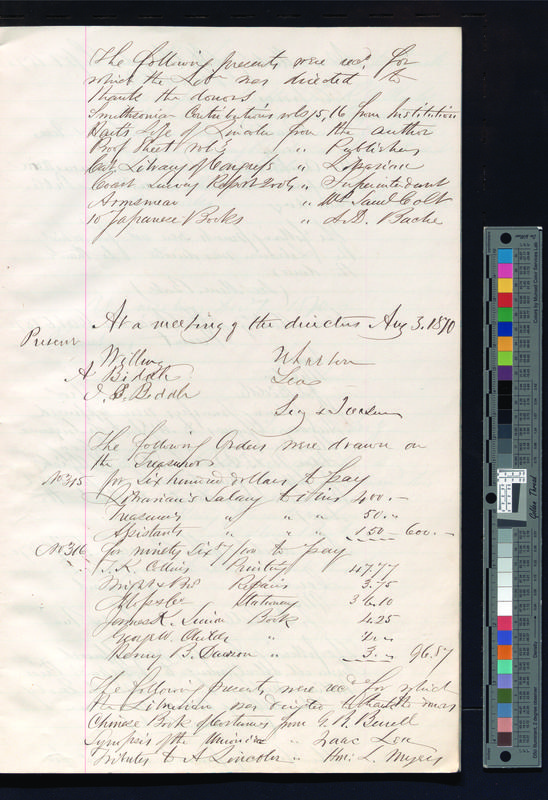 The following presents were recd. for
which the Libn was directed to
thank the donors
Smithsonian Contributions vols 15, 16 from Institution
Life of Lincoln from the author
Proof Sheet vol 3 " " Publishers
Cat. Library of Congress " Librarian
Coast Survey Report " Superintendent
Armsmear " Mrs Saml Colt
10 Japanese Books " A.D. Bache
At a meeting of the directors Aug 3. 1870
Present
Willing Wharton
A Biddle Lea
Biddle
Secy & Treasurer
The following Orders were drawn on
the Treasurer
No 315 for Six hundred dollars to pay
Librarian's Salary to 400.-
Treasurer's " " " 50. "
Assistants " " " 150 - 600.-
No 316 for ninety six /100 to pay
Collins Printing 47.77
Wright & Repairs 3.75
Stationery 10
James Book 4.25
George W.
Henry B. " 3. " 96.87
The following presents were recd for which
the Librarian was directed to thank the donors
Chinese Book of Costumes from
Synopsis of the " Isaac Lea
Tributes to A Lincoln " Hon. L. Myers